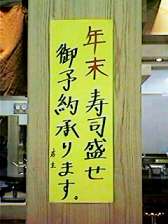 年末 寿司盛せ
御予約承ります。
店主